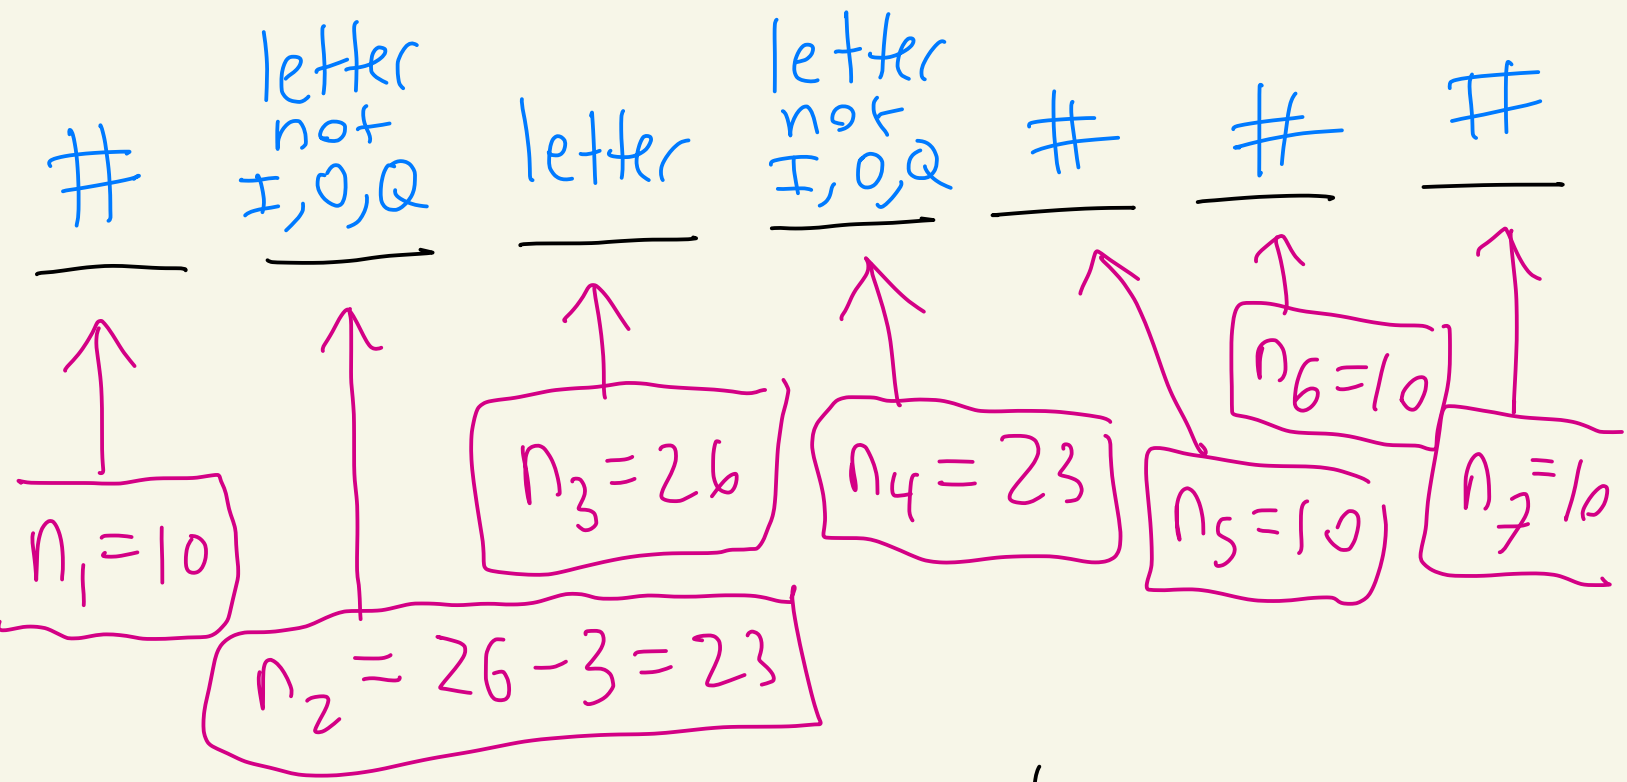 #
letter
not
I,O,Q
letter
letter
not
I,O,Q
#
#
#
n₁=10
n₂=26-3=23
n₃=26
n₄=23
n₅=10
n₆=10
n₇=10